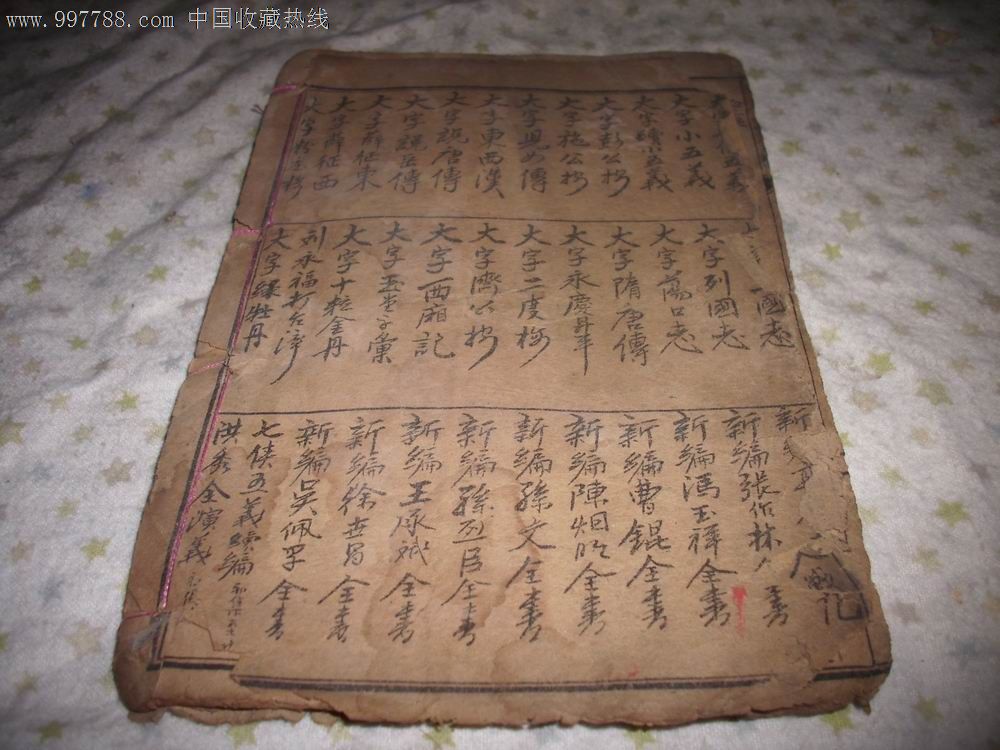 www.997788.com 中国收藏热线
五義
大字小五義
大字續小五義
大字彭公按
大字施公按
大字兒女傳
大字東西漢
大字說唐傳
大字說岳傳
大字薛征東
大字薛征西
大字
國志
大字列國志
大字蕩口志
大字隋唐傳
大字永慶昇平
大字二度梅
大字濟公按
大字西廂記
大字玉堂字彙
大字十粒金丹
劉永福打台灣
大字綠牡丹
新編
新編張作林
新編馮玉祥全書
新編曹錕全書
新編陳烟明全書
新編孫文全書
新編孫烈臣全書
新編王承斌全書
新編徐世昌全書
新編吳佩孚全書
七俠五義續編
洪秀全演義
記